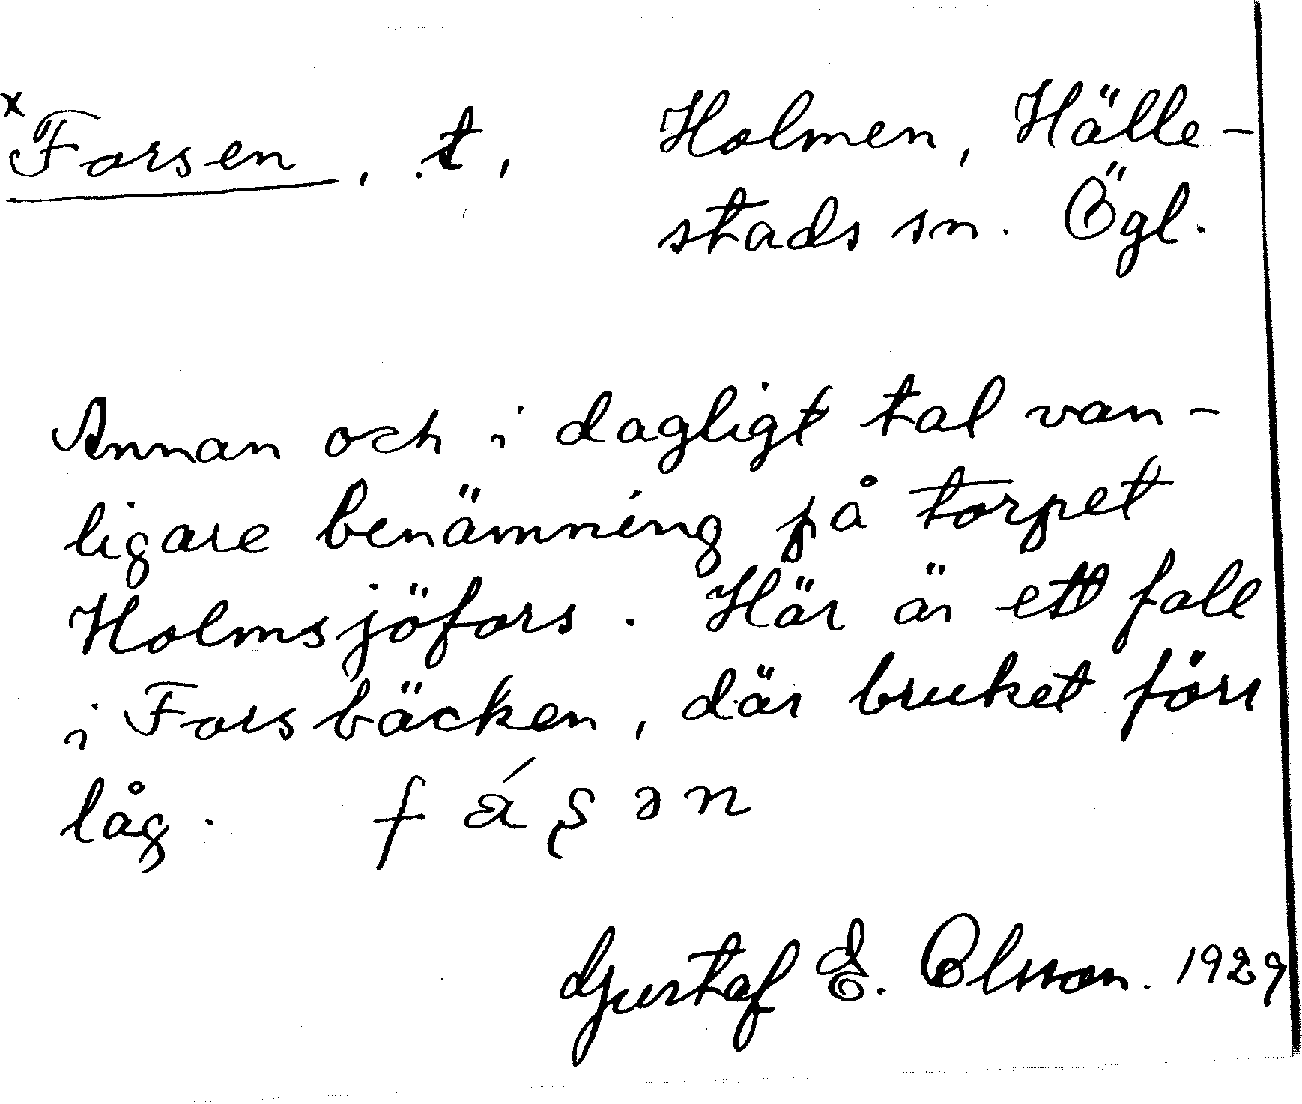 x Forsen, t, Holmen, Hälle-
stads sn. Ögl.
Annan och i dagligt tal van-
ligare benämning på torpet
Holmsjöfors. Här är ett fall
i Forsbäcken, där bruket förr
låg.
Gustaf E. Olsson. 1929